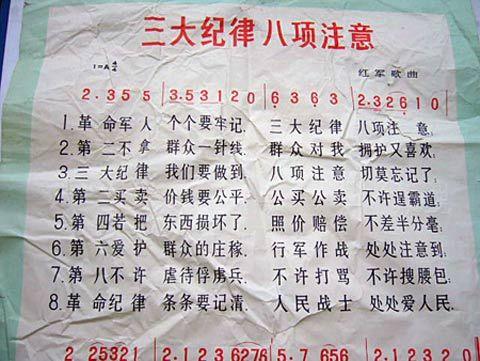 三大纪律八项注意
1=A 4/4
红军歌曲
2·3 5 5 3·5 3 1 2 0 6 3 6 3 2·3 2 6 1 0
1.革命军人 个个要牢记, 三大纪律 八项注意;
2.第二不拿 群众一针线, 群众对我 拥护又喜欢;
3.三大纪律 我们要做到, 八项注意 切莫忘记了;
4.第二买卖 价钱要公平, 公买公卖 不许逞霸道;
5.第四若把 东西损坏了, 照价赔偿 不差半分毫;
6.第六爱护 群众的庄稼, 行军作战 处处注意到;
7.第八不许 虐待俘虏兵, 不许打骂 不许搜腰包;
8.革命纪律 条条要记清, 人民战士 处处爱人民,
2 25321 2·1 2 3 6276 5·7 656 2·3